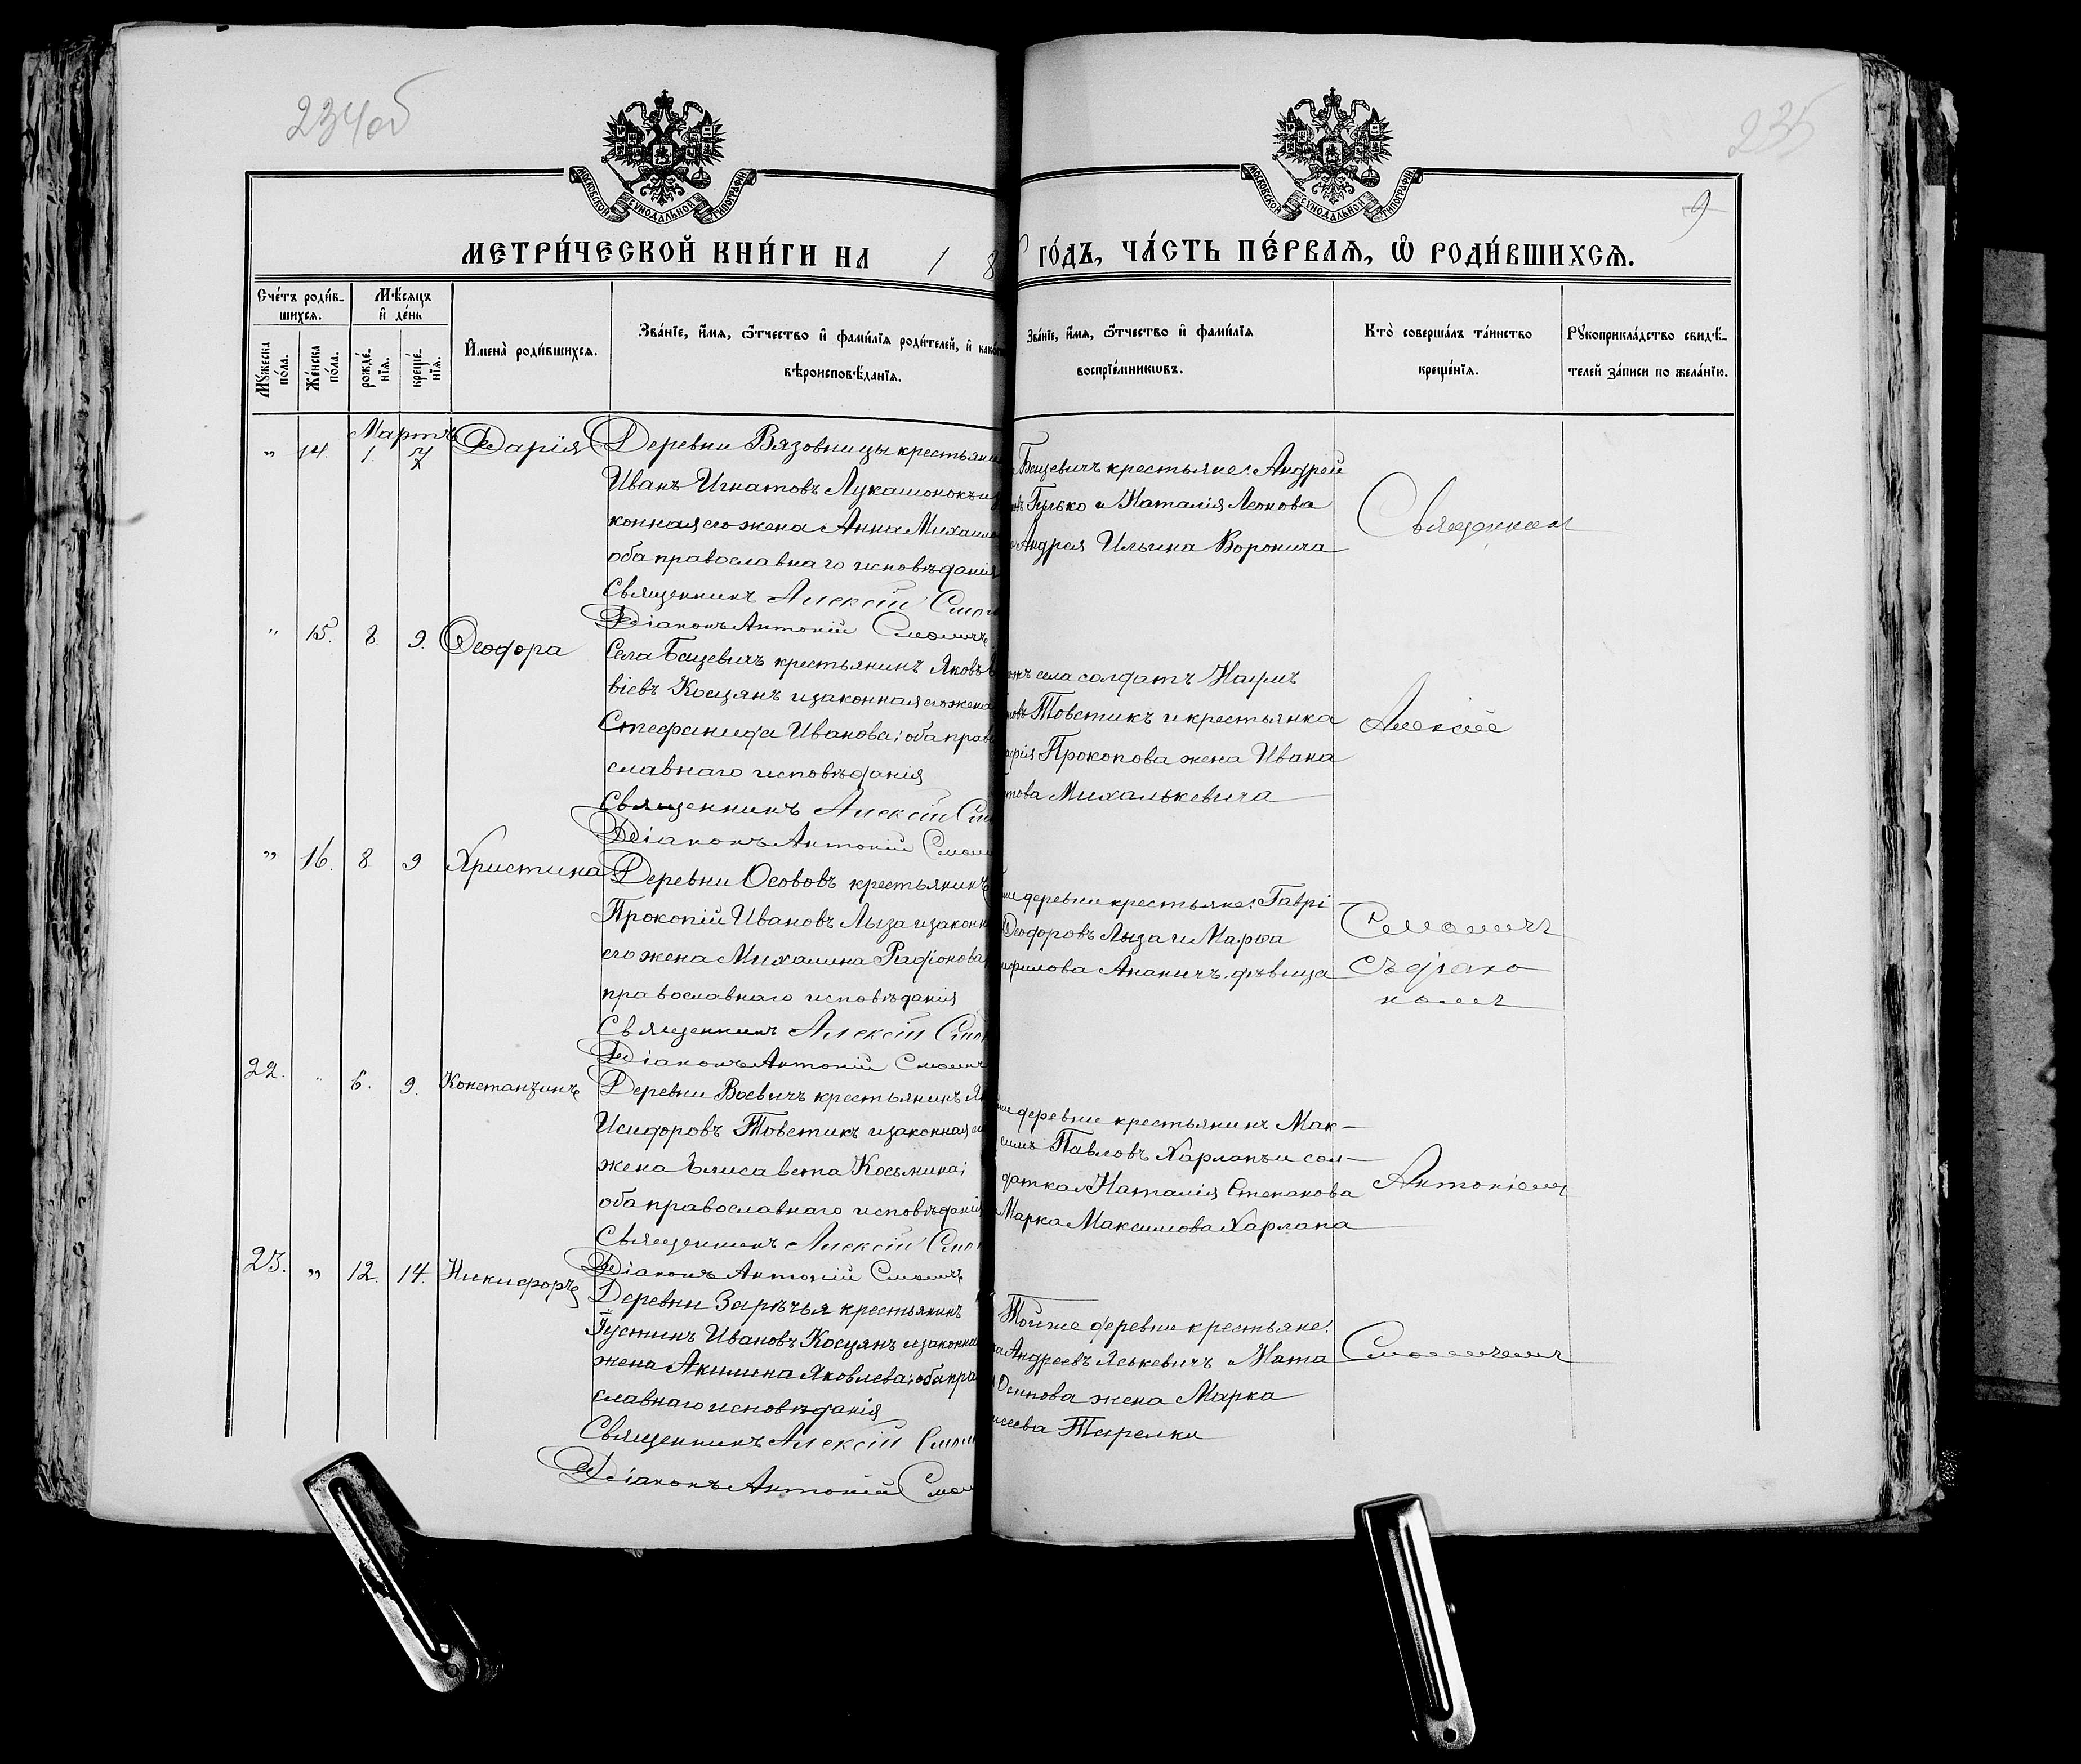 234об
235
9
МОСКОВСКОЙ СѴНОДАЛЬНОЙ ТИПОГРАФІИ
МОСКОВСКОЙ СѴНОДАЛЬНОЙ ТИПОГРАФІИ
МЕТРИ́ЧЕСКОЙ КНИ́ГИ НА 1 8 ГО́ДЪ, ЧА́СТЬ ПЕ́РВАѦ, Ѡ҆ РОДИ́ВШИХСѦ.
Сче́тъ роди́в-
шихсѧ.
Мꙋ́жеска по́ла.
Же́нска по́ла.
Мѣ́сѧцъ
и҆ де́нь
рожде́-
нїѧ.
креще́-
нїѧ.
И҆мена̀ роди́вшихсѧ.
Зва́нїе, и҆́мѧ, ѻ҆́тчество и҆ фами́лїѧ роди́телей, и҆
вѣроисповѣ́данїѧ.
Зва́нїе, и҆́мѧ, ѻ҆́тчество и҆ фами́лїѧ
воспрїе́мникѡвъ.
Кто̀ соверша́лъ та́инство
креще́нїѧ.
Рꙋкоприкла́дство свидѣ́-
телей за́писи по жела́нїю.
Мартъ
„ 14. 1. 7 Дарія
Деревни Вязовницы
Иванъ Игнатовъ Лукашонокъ
конная его жена Анна
оба православнаго исповѣданія
Священникъ Алексій
Діаконъ Антоній Смоличъ
Бацевичъ крестьяне: Андрей
Гулько и Наталія Леонова
Андрея Ильина Воронича
„ 15. 8. 9. Ѳеодора
Села Бацевичъ крестьянинъ Яковъ
віевъ Косцянъ и законная его жена
Стефанида Иванова; оба право
славнаго исповѣданія
Священникъ Алексій
Діаконъ Антоній
села солдатъ Наумъ
Товстикъ и крестьянка
Прокопова жена Ивана
Михалькевича
„ 16. 8. 9 Христина
Деревни Осововъ крестьянинъ
Прокопій Ивановъ Лыза и законн
его жена Михалина Радіонова
православнаго исповѣданія
Священникъ Алексій
Діаконъ Антоній
же деревни крестьяне: Гаврі
Ѳеодоровъ Лыза и Марѳа
Ананичъ, дѣвица
22. „ 6. 9. Константинъ
Деревни Воевичъ крестьянинъ
Исидоровъ Товстикъ и законная
жена Елисавета Косьмина;
оба православнаго исповѣданія
Священникъ Алексій
Діаконъ Антоній Смоличъ
деревни крестьянинъ Мак-
симъ Павловъ Харланъ и сол-
датка Наталія Степанова
Марка Максимова Харлана
23. „ 12. 14. Никифоръ
Деревни Зарѣчья крестьянинъ
Іустинъ Ивановъ Косцянъ и законна
жена Акилина Яковлева; оба пра
славнаго исповѣданія
Священникъ Алексій
Діаконъ Антоній
Тойже деревни крестьяне:
Андреевъ Яськевичъ и Ната
Осипова жена Марка
Тарелки
Священникъ
Алексій
Смоличъ
съ діако
номъ
Антоніемъ
Смоличемъ